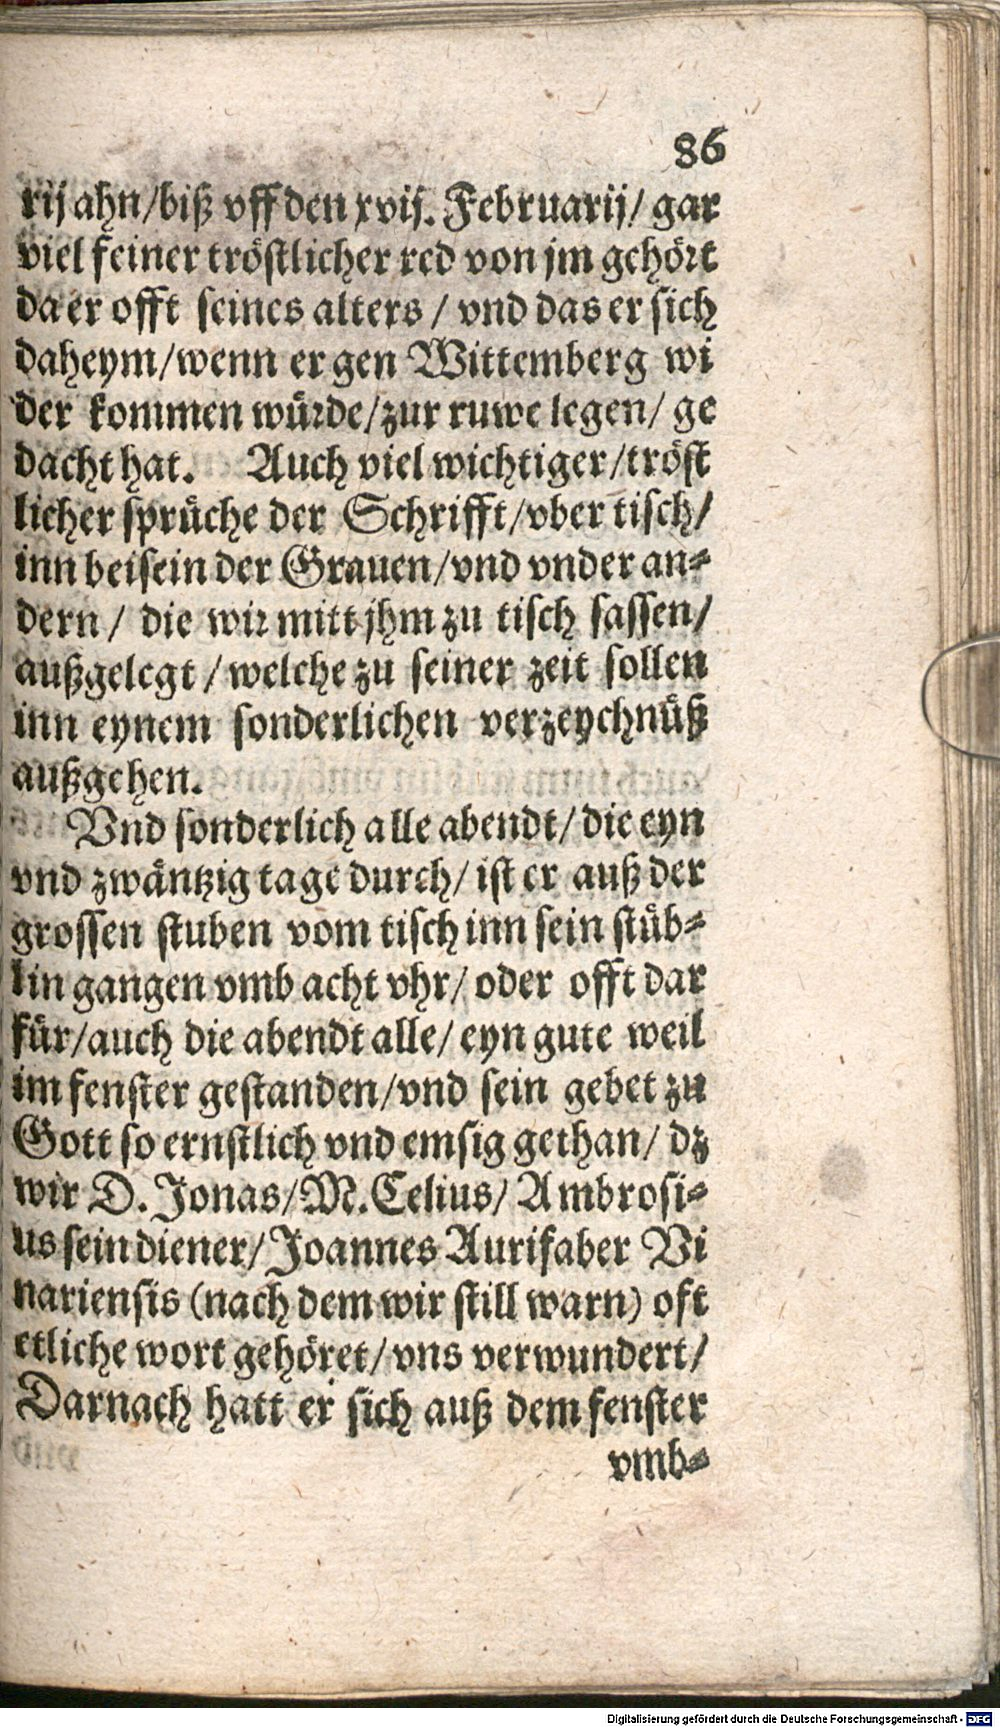 86
rij ahn/biß vff den xvij. Februarij/ gar
viel feiner tröstlicher red von jm gehört
da er offt seines alters / vnd das er sich
daheym/wenn er gen Wittemberg wi
der kommen würde/zur ruwe legen/ ge
dacht hat. Auch viel wichtiger/tröst
licher sprüche der Schrifft/vber tisch/
inn beisein der Grauen/vnd vnder an-
dern / die wir mitt jhm zu tisch sassen/
außgelegt / welche zu seiner zeit sollen
inn eynem sonderlichen verzeychnüß
außgehen.
Vnd sonderlich alle abendt/ die eyn
vnd zwäntzig tage durch/ ist er auß der
grossen stuben vom tisch inn sein stüb-
lin gangen vmb acht vhr/ oder offt dar
für/auch die abendt alle/ eyn gute weil
im fenster gestanden/vnd sein gebet zu
Gott so ernstlich vnd emsig gethan/ dz
wir D. Jonas/M. Celius/ Ambrosi-
us sein diener/ Joannes Aurifaber Vi
nariensis (nach dem wir still warn) oft
etliche wort gehöret/vns verwundert/
Darnach hatt er sich auß dem fenster
vmb-
Digitalisierung gefördert durch die Deutsche Forschungsgemeinschaft - DFG